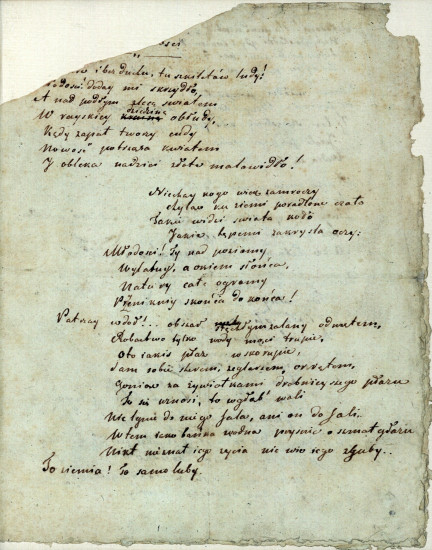 ości
i bez ducha, to szkieletów ludy!
łodości! dodaj mi skrzydła,
A nad podłym zlecę światem
dziedzinę
W rayskiey obłudy,
Kędy zapał tworzy cudy
Nowość potrząsa kwiatem
I obleka nadziei złote malowidło!
Niechay kogo wiek zamroczy
chyląc ku ziemi poradlone czoło
Takie widzi świata koło
Jakie tępemi zakryśla oczy:
Młodości! Ty nad poziomy
Wylatuy, a okiem słońca,
Natury całe ogromy
Przenikniy z końca do końca!
Patrzay w dół!.. obszar zalany odmętem,
tylko wody
Oto jakiś płaz w skorupie,
Sam sobie sterem, żeglarzem, okrętem,
Goniąc za żywiątkami drobniejszego płazu
To się wznosi, to wgłąb wali
Nie lgnie do niego fala, ani on do fali..
Wtem jako bańka prysnie o szmat głazu
Nikt nieznał jego życia nie wie jego zguby..
To ziemia! To samo luby.